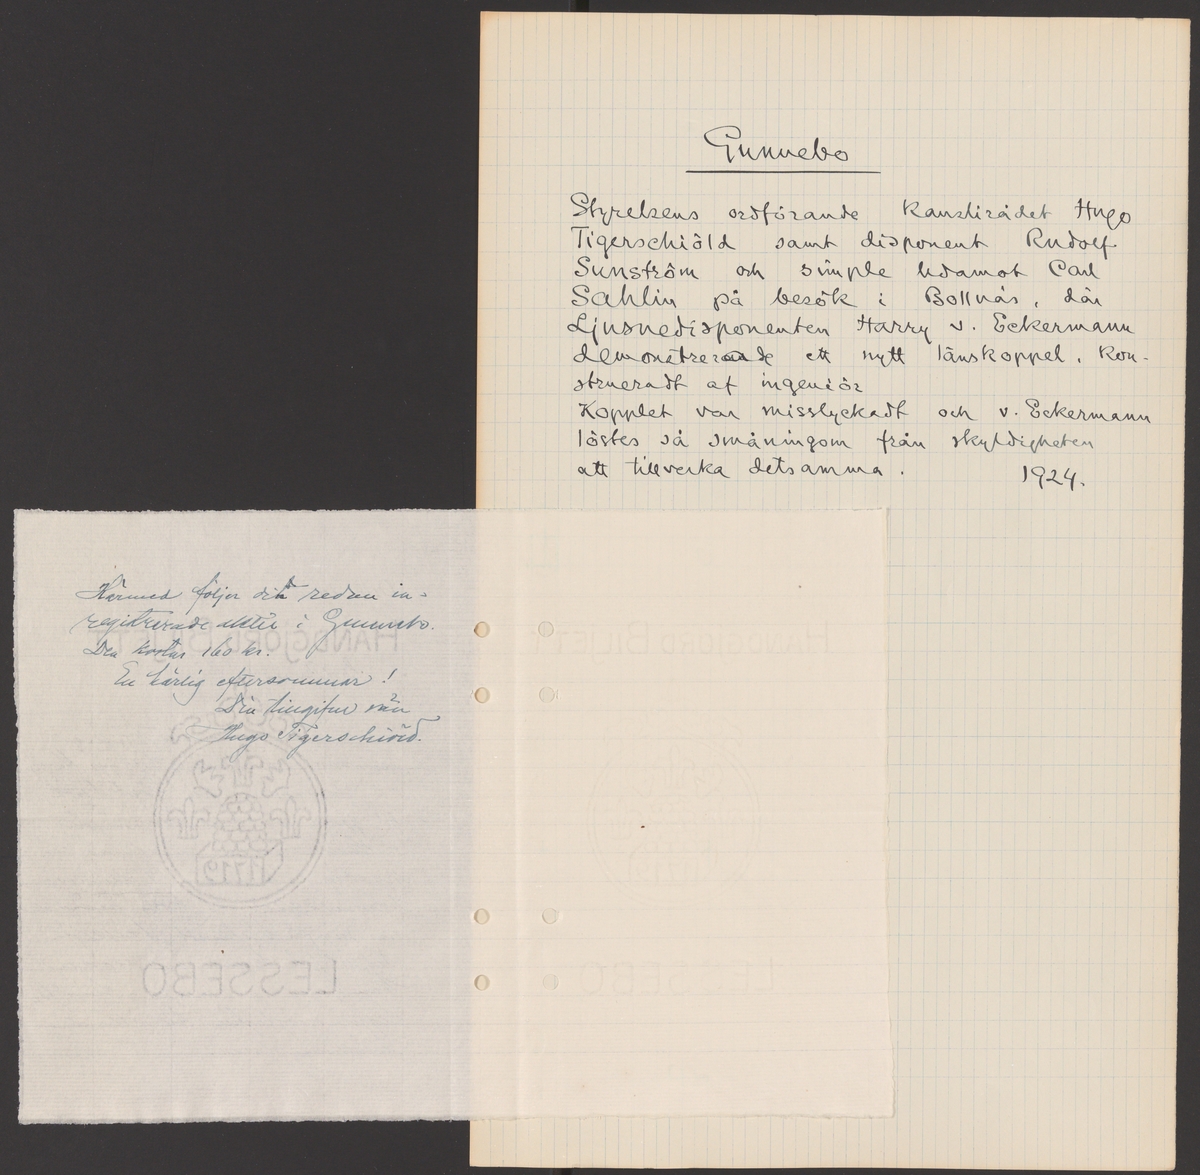 Gunnebo
Styrelsens ordförande kanslirådet Hugo
Tigerschiöld samt disponent Rudolf
Sunström och simple ledamot Carl
Sahlin på besök i Bollnäs, där
Ljusnedisponenten Harry v. Eckermann
demonstrerande ett nytt länskoppel, kon-
strueradt af ingeniör
Kopplet var misslyckadt och v. Eckermann
löstes så småningom från skyldigheten
att tillverka detsamma. 1924.
Härmed följer din redan in-
registrerade aktie i Gunnebo.
Den kostar 160 kr.
En härlig eftersommar!
Din tillgifne vän
Hugo Tigerschiöld.
HANDGJORD BILJETT
1719
LESSEBO